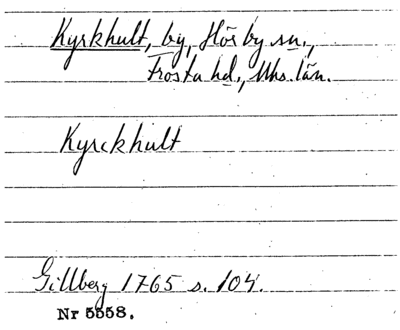 Kyrkhult, by, Hörby sn.,
Frosta hd., Mhs. län.
Kyrckhult
Gillberg 1765 s. 104.
Nr 5558.